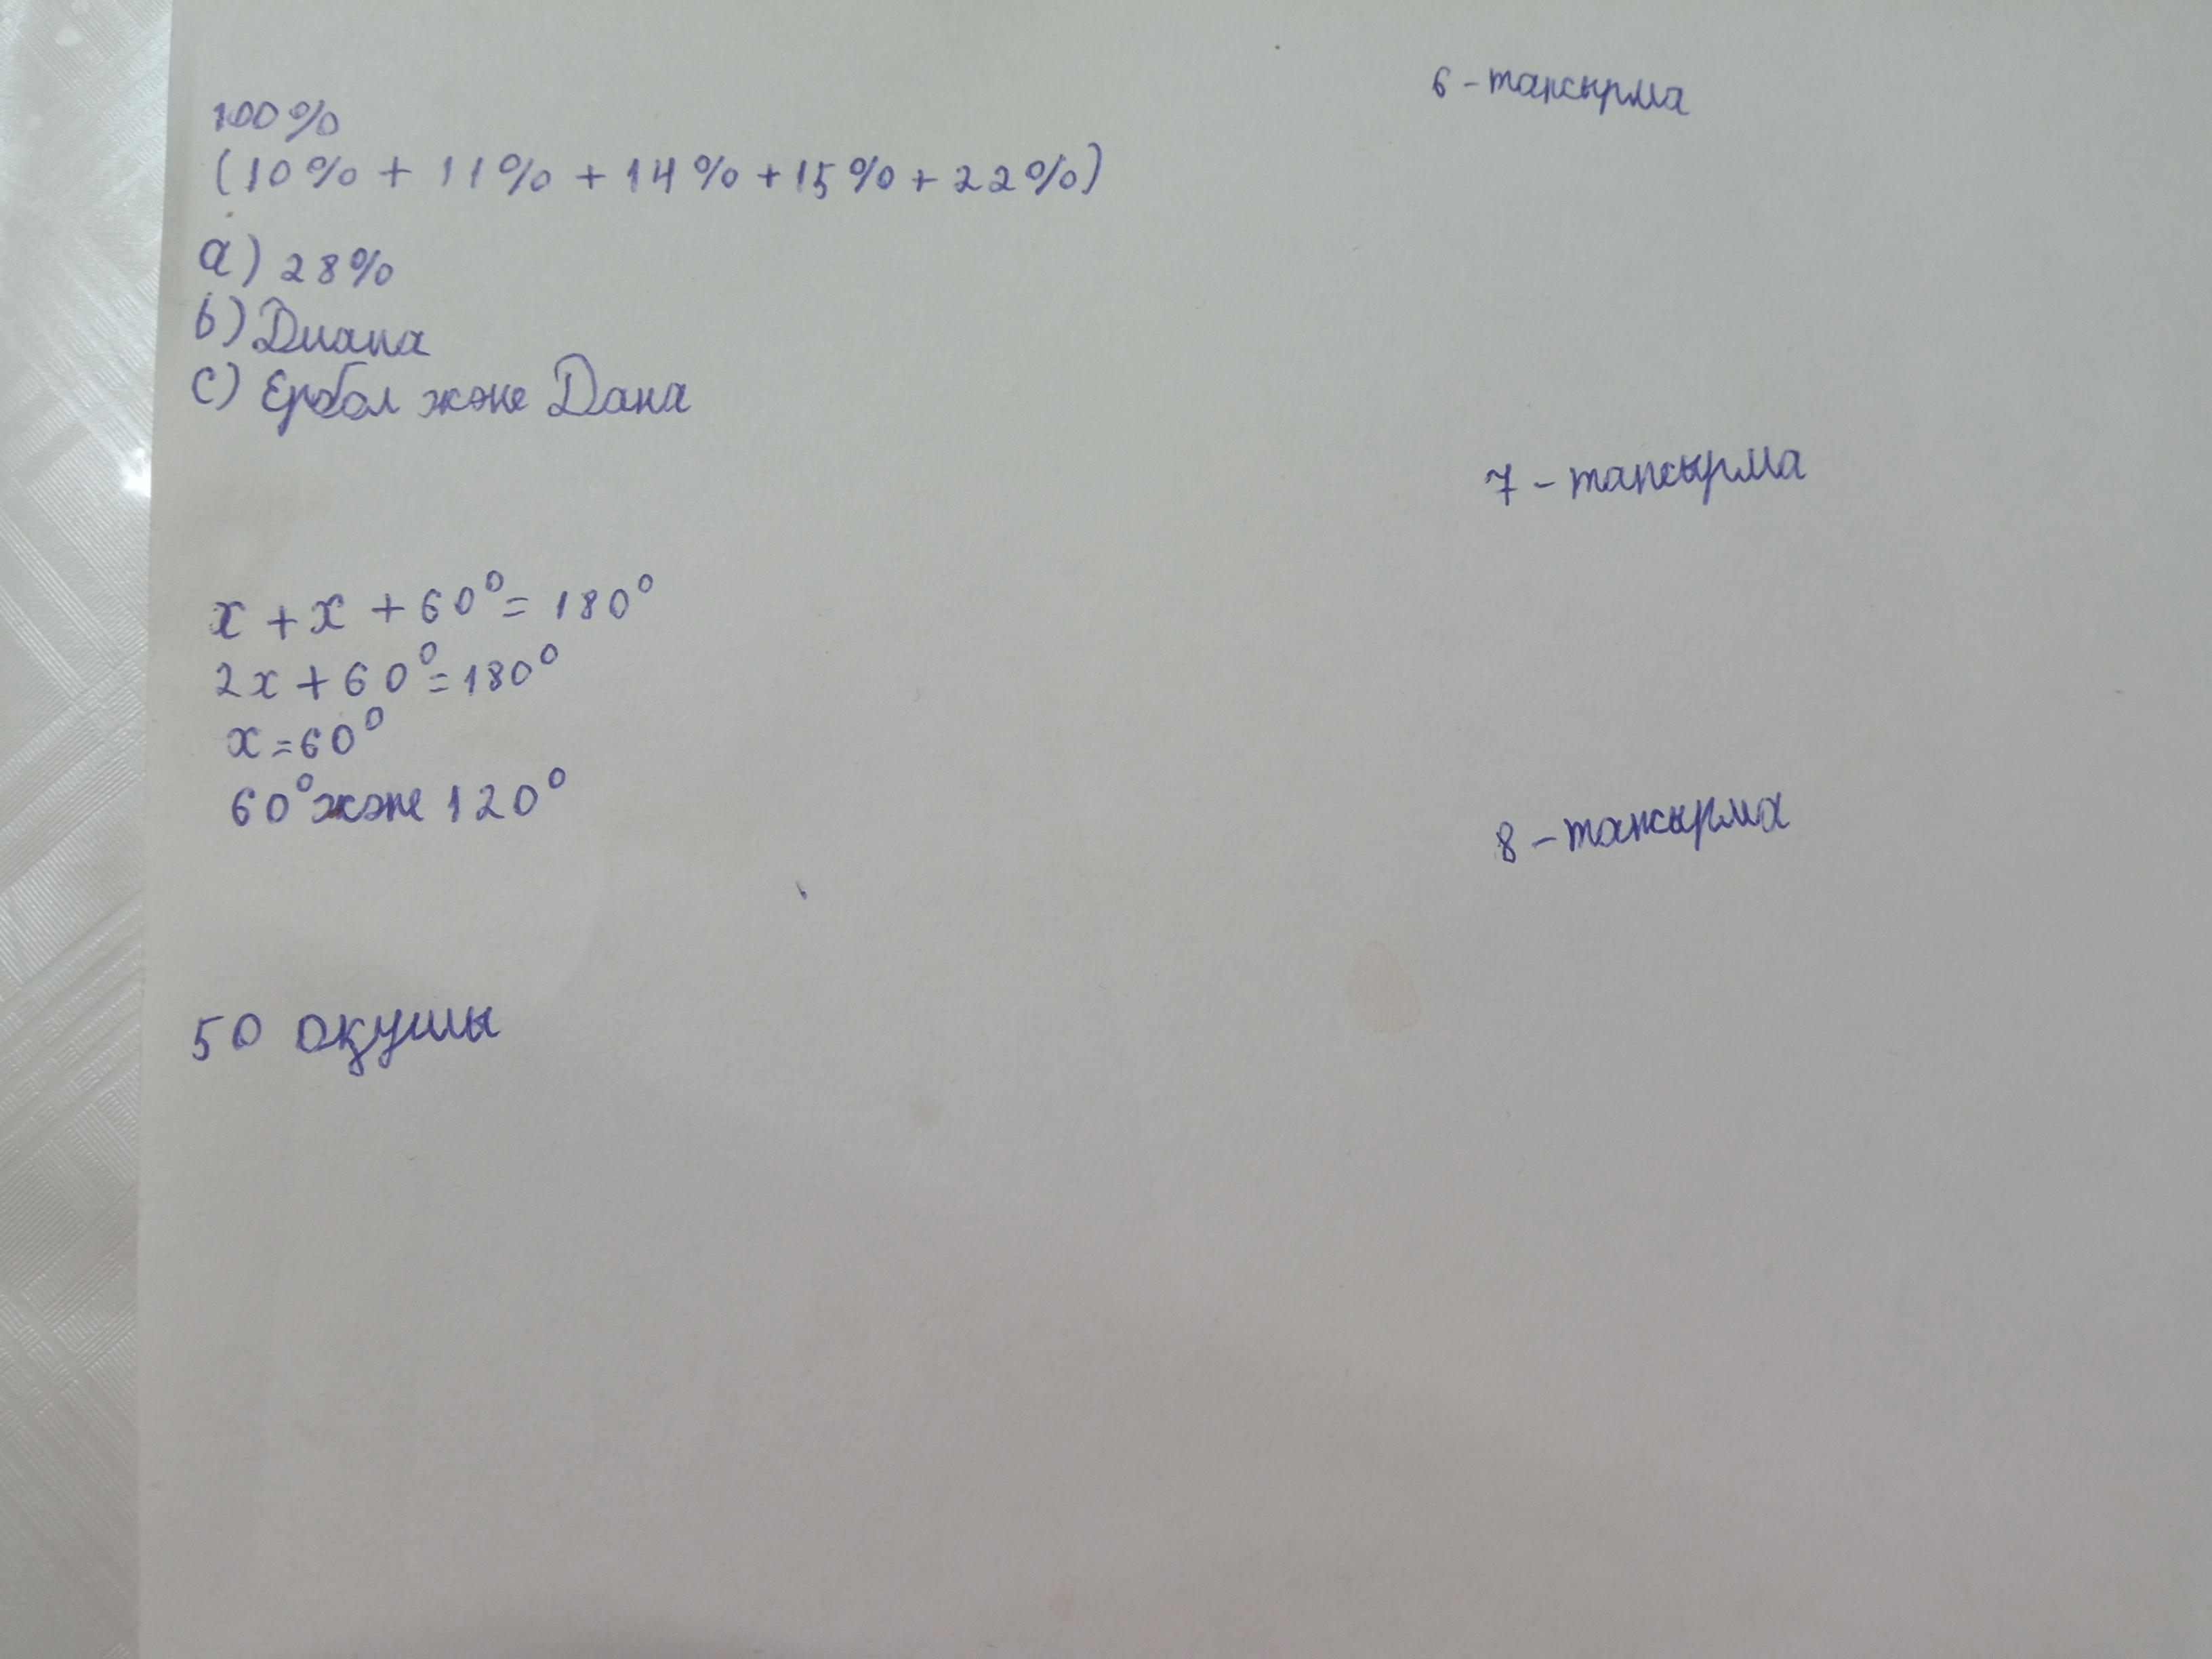 6-тапсырма
100%
(10% + 11% + 14% + 15% + 22%)
a) 28%
b) Диана
c) Ербол және Дана
7-тапсырма
x + x + 60° = 180°
2x + 60° = 180°
x = 60°
60° және 120°
8-тапсырма
50 оқушы